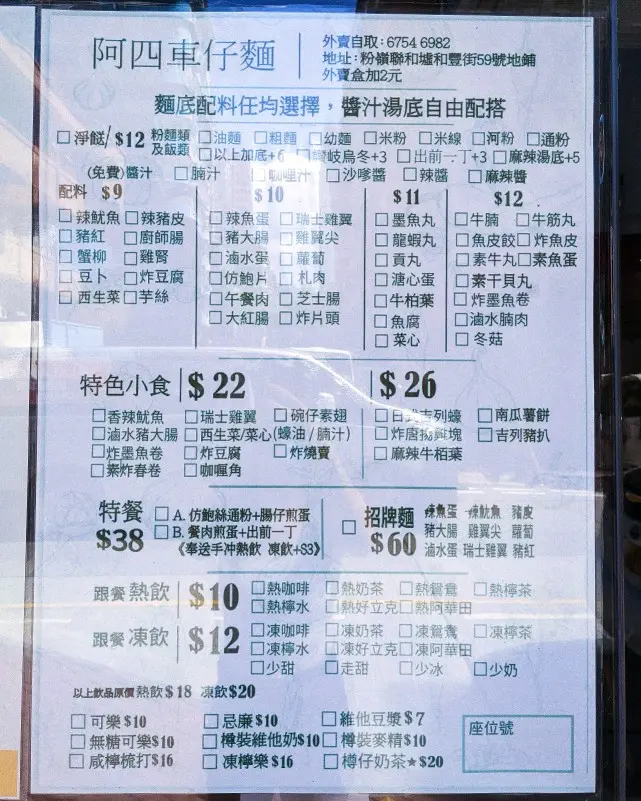 阿四車仔麵
外賣自取：6754 6982
地址：粉嶺聯和墟和豐街59號地鋪
外賣盒加2元
麵底配料任均選擇，醬汁湯底自由配搭
□淨餸/$12 粉麵類及飯類 □油麵 □粗麵 □幼麵 □米粉 □米線 □河粉 □通粉
□以上加底+6 讚岐烏冬+3 □出前一丁+3 □麻辣湯底+5
(免費)醬汁 □腩汁 □咖喱汁 □沙嗲醬 □辣醬 □麻辣醬
配料 $9
□辣魷魚 □辣豬皮
□豬紅 □廚師腸
□蟹柳 □雞腎
□豆卜 □炸豆腐
□西生菜 □芋絲
$10
□辣魚蛋 □瑞士雞翼
□豬大腸 □雞翼尖
□滷水蛋 □蘿蔔
□仿鮑片 □札肉
□午餐肉 □芝士腸
□大紅腸 □炸片頭
$11
□墨魚丸
□龍蝦丸
□貢丸
□溏心蛋
□牛柏葉
□魚腐
□菜心
$12
□牛腩 □牛筋丸
□魚皮餃 □炸魚皮
□素牛丸 □素魚蛋
□素干貝丸
□炸墨魚卷
□滷水腩肉
□冬菇
特色小食 $22
□香辣魷魚 □瑞士雞翼 □碗仔素翅
□滷水豬大腸 □西生菜/菜心(蠔油/腩汁)
□炸墨魚卷 □炸豆腐 □炸燒賣
□素炸春卷 □咖喱角
$26
□日式吉列蠔 □南瓜薯餅
□炸唐揚雞塊 □吉列豬扒
□麻辣牛栢葉
特餐 $38
□A. 仿鮑絲通粉+腸仔煎蛋
□B. 餐肉煎蛋+出前一丁
《奉送手冲熱飲 凍飲+$3》
□招牌麵 $60
辣魚蛋 辣魷魚 豬皮
豬大腸 雞翼尖 蘿蔔
滷水蛋 瑞士雞翼 豬紅
跟餐 熱飲 $10
□熱咖啡 □熱奶茶 □熱鴛鴦 □熱檸茶
□熱檸水 □熱好立克 □熱阿華田
跟餐 凍飲 $12
□凍咖啡 □凍奶茶 □凍鴛鴦 □凍檸茶
□凍檸水 □凍好立克 □凍阿華田
□少甜 □走甜 □少冰 □少奶
以上飲品原價 熱飲$18 凍飲$20
□可樂$10 □忌廉$10 □維他豆漿$7
□無糖可樂$10 □樽裝維他奶$10 □樽裝麥精$10
□咸檸梳打$16 □凍檸樂$16 □樽仔奶茶★$20
座位號